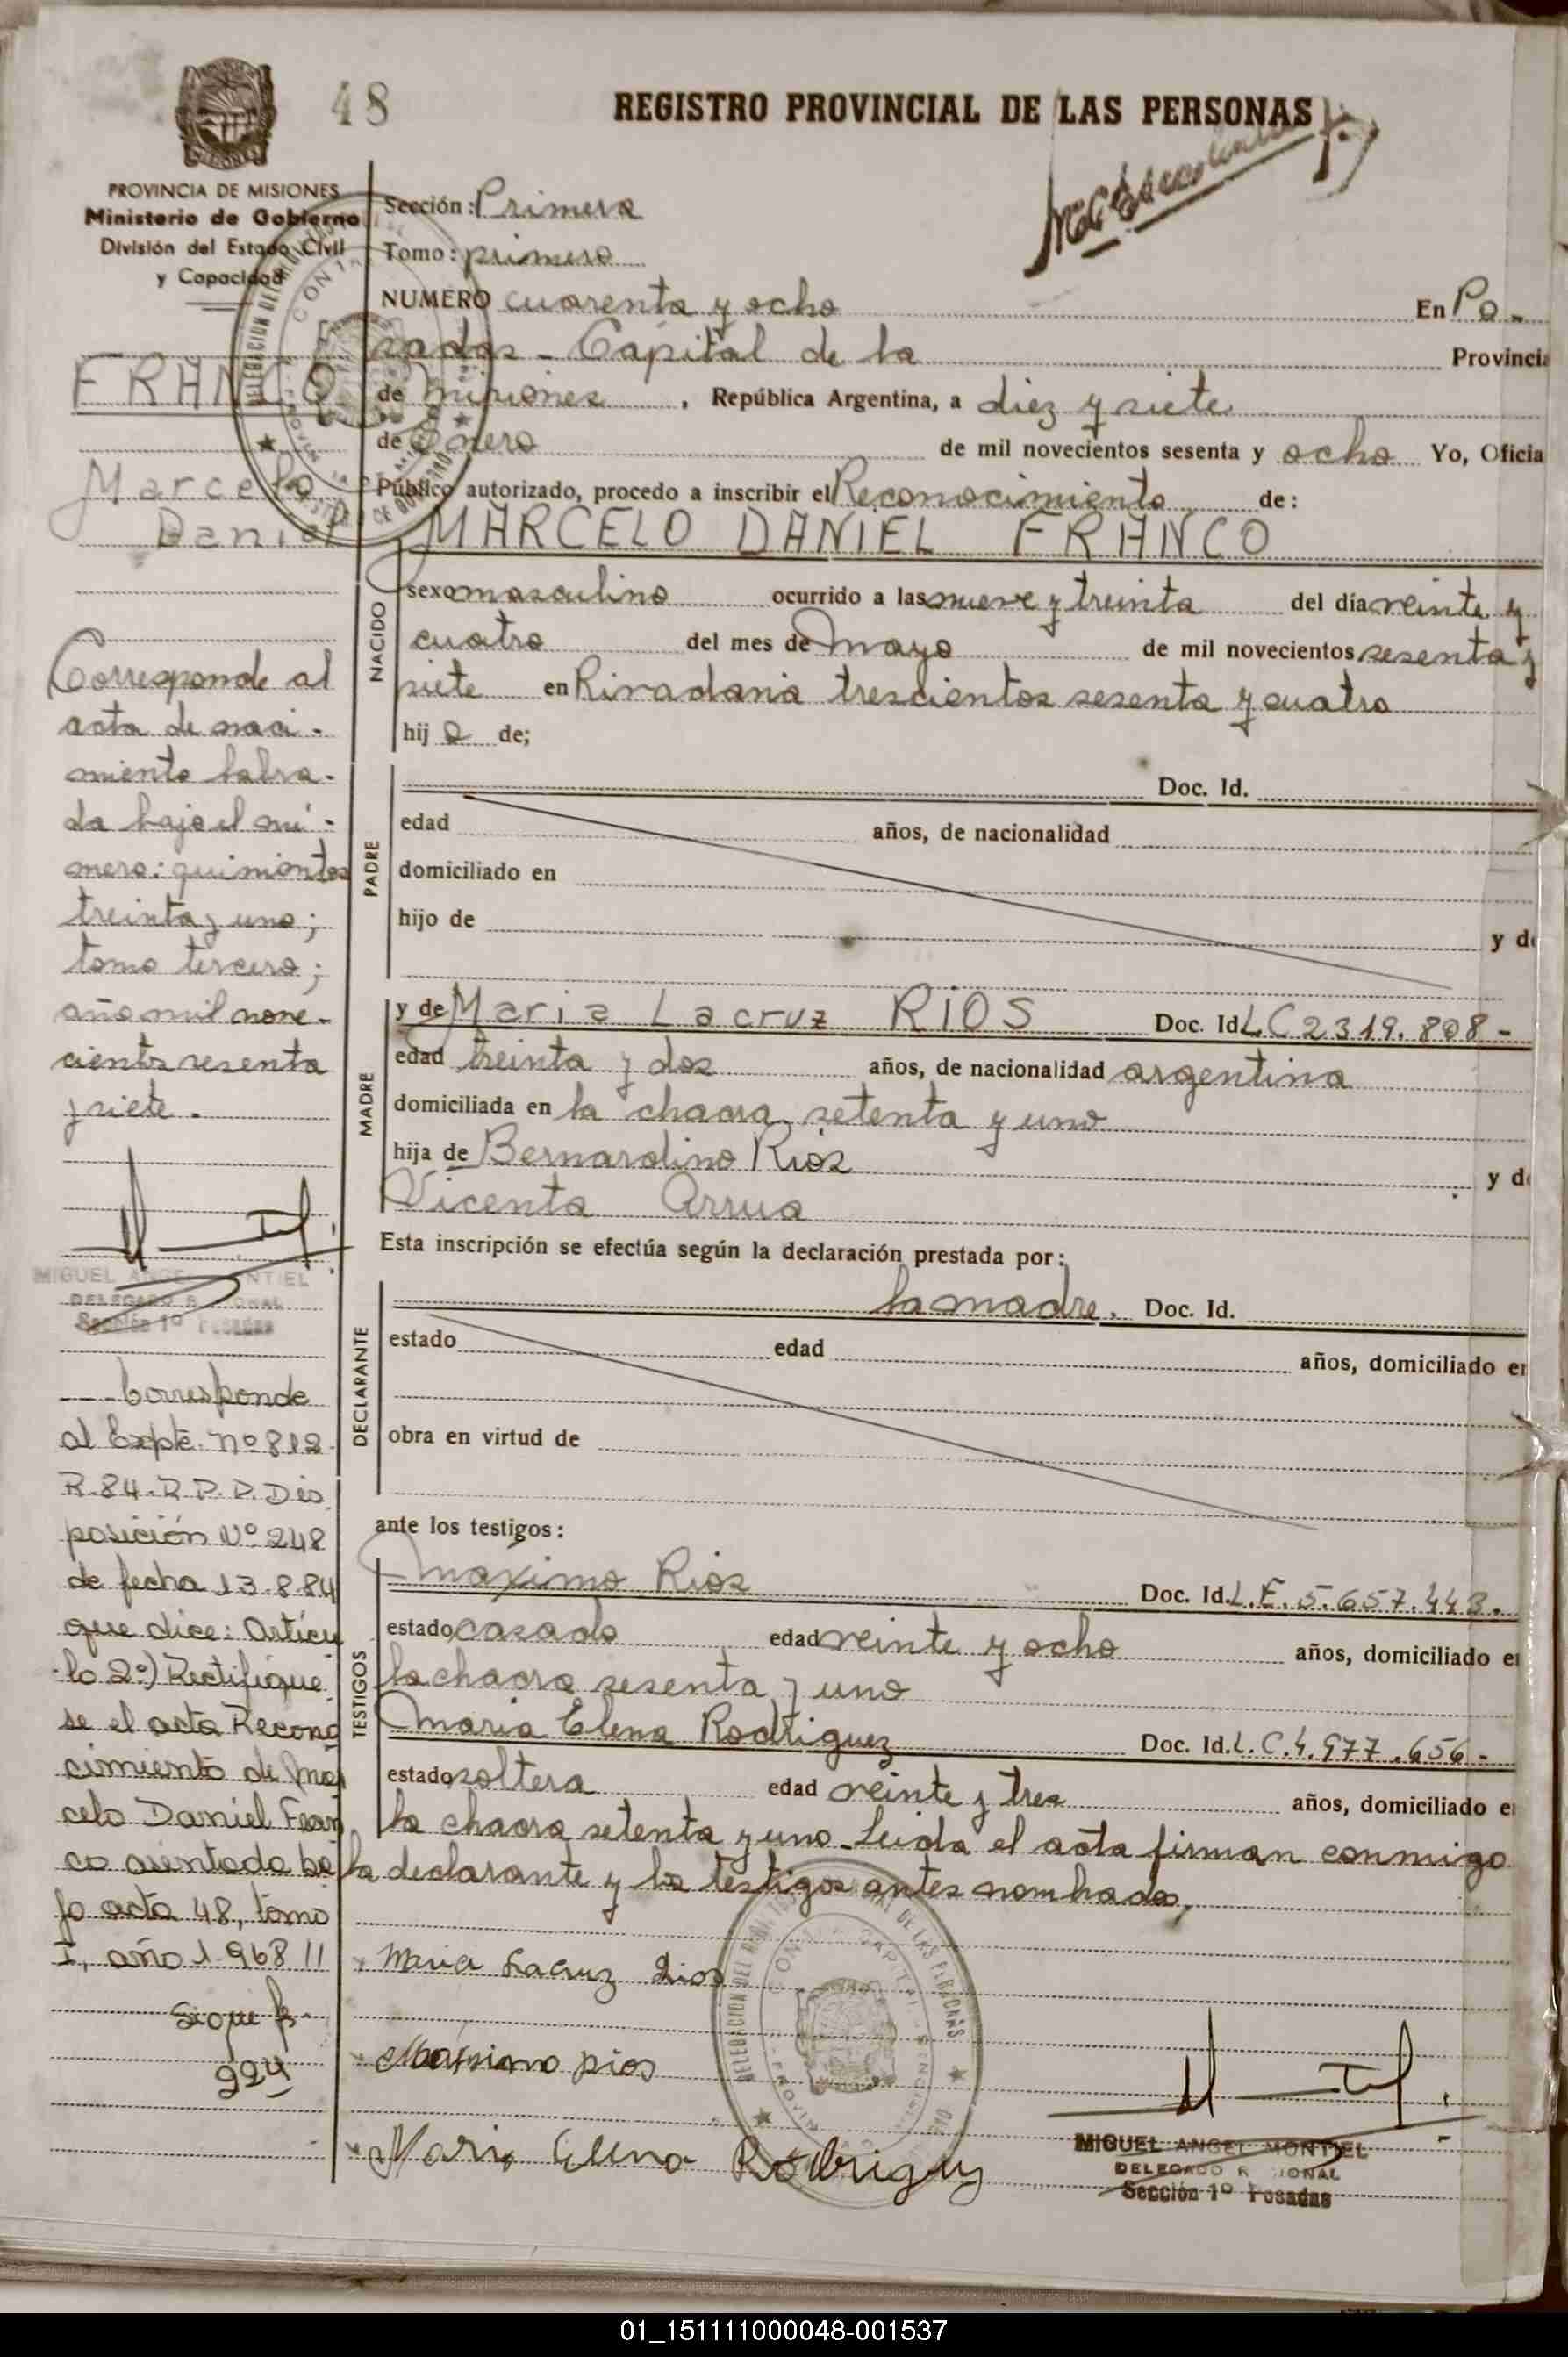 48
REGISTRO PROVINCIAL DE LAS PERSONAS
PROVINCIA DE MISIONES
Ministerio de Gobierno
División del Estado Civil
y Capacidad
Sección: Primera
Tomo: primero
NUMERO cuarenta y ocho En Po-
sadas - Capital de la Provincia
de Misiones, República Argentina, a diez y siete
de Enero de mil novecientos sesenta y ocho Yo, Oficia
Público autorizado, procedo a inscribir el Reconocimiento de:
MARCELO DANIEL FRANCO
NACIDO
sexo masculino ocurrido a las nueve y treinta del día veinte y
cuatro del mes de Mayo de mil novecientos sesenta y
siete en Rivadavia trescientos sesenta y cuatro
hijo de;
PADRE
Doc. Id.
edad años, de nacionalidad
domiciliado en
hijo de y de
MADRE
y de Maria Lacruz RIOS Doc. Id LC 2319.808-
edad treinta y dos años, de nacionalidad argentina
domiciliada en la chacra setenta y uno
hija de Bernardino Rios y de
Vicenta Arrua
Esta inscripción se efectúa según la declaración prestada por:
DECLARANTE
la madre. Doc. Id.
estado edad años, domiciliado en
obra en virtud de
ante los testigos:
TESTIGOS
Maximo Rios Doc. Id. L.E. 5.657.443.
estado casado edad veinte y ocho años, domiciliado en
la chacra sesenta y uno
Maria Elena Rodriguez Doc. Id. L.C. 4.977.656-
estado soltera edad veinte y tres años, domiciliado en
la chacra setenta y uno - Leida el acta firman conmigo
la declarante y los testigos antes nombrados,
Maria Lacruz Rios
Maximo Rios
Maria Elena Rodriguez
MIGUEL ANGEL MONTIEL
DELEGADO REGIONAL
Sección 1º Posadas
FRANCO
Marcelo
Daniel
Corresponde al
acta de naci-
miento labra-
da bajo el nú-
mero: quinientos
treinta y uno;
tomo tercero;
año mil nove-
cientos sesenta
y siete.
MIGUEL ANGEL MONTIEL
DELEGADO REGIONAL
Sección 1º Posadas
Corresponde
al Expte. Nº 812
R.84. R.P.P. Dis
posición Nº 248
de fecha 13-8-84
que dice: Artícu
lo 2º) Rectifique
se el acta Recono
cimiento de Mar
celo Daniel Fran
co asentado ba
jo acta 48, tomo
I, año 1.968 //
Sigue fº
224
01_151111000048-001537